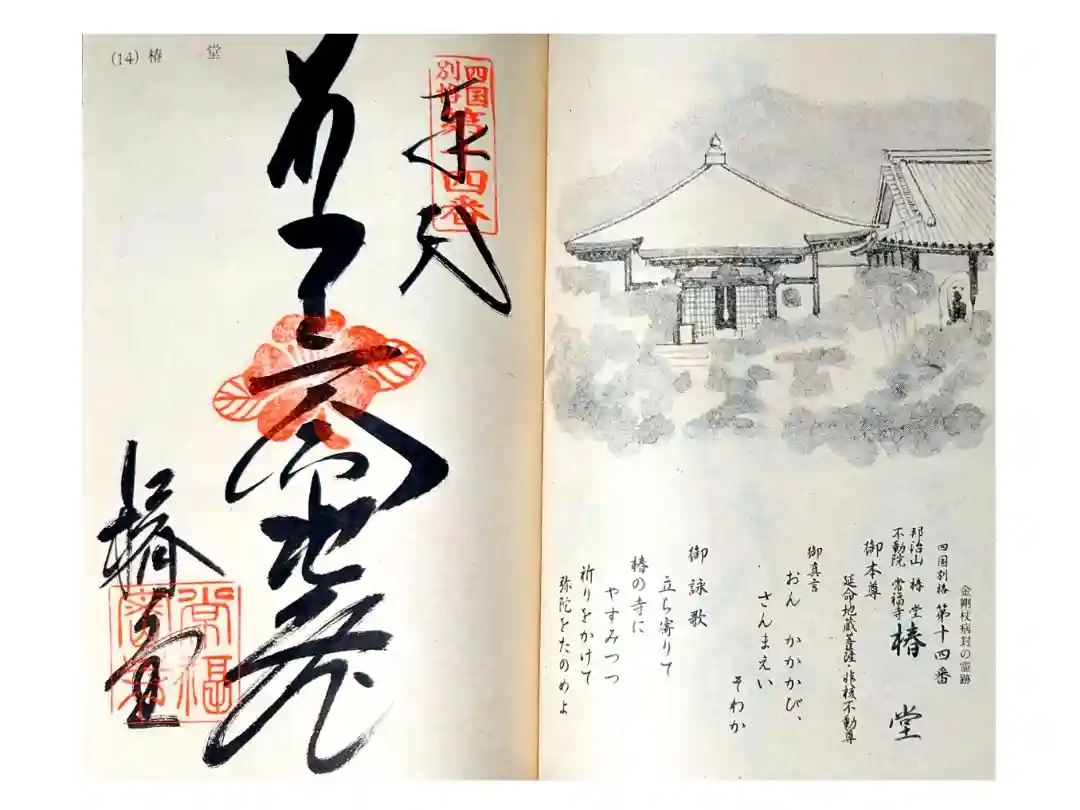 金剛杖病封の霊跡
四国別格 第十四番
邦治山 椿堂
不動院 常福寺
椿堂
御本尊
延命地蔵菩薩・非核不動尊
御真言
おん かかかび、
さんまえい
そわか
御詠歌
立ち寄りて
椿の寺に
やすみつつ
祈りをかけて
弥陀をたのめよ
(14) 椿 堂
四国
別格
第十四番
椿堂